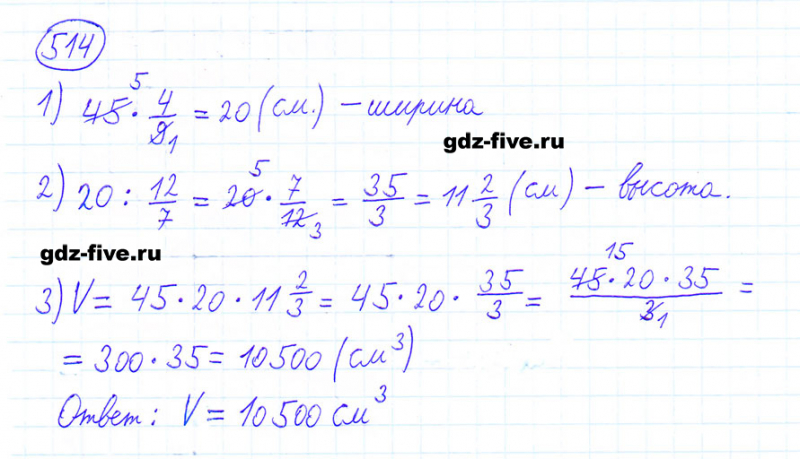 514
1) 45 · 4/9 = 20 (см.) – ширина
5 1
gdz-five.ru
2) 20 : 12/7 = 20 · 7/12 = 35/3 = 11 2/3 (см) – высота.
5 3
gdz-five.ru
3) V = 45 · 20 · 11 2/3 = 45 · 20 · 35/3 = 45 · 20 · 35/3 =
15 1
= 300 · 35 = 10500 (см³)
Ответ: V = 10500 см³